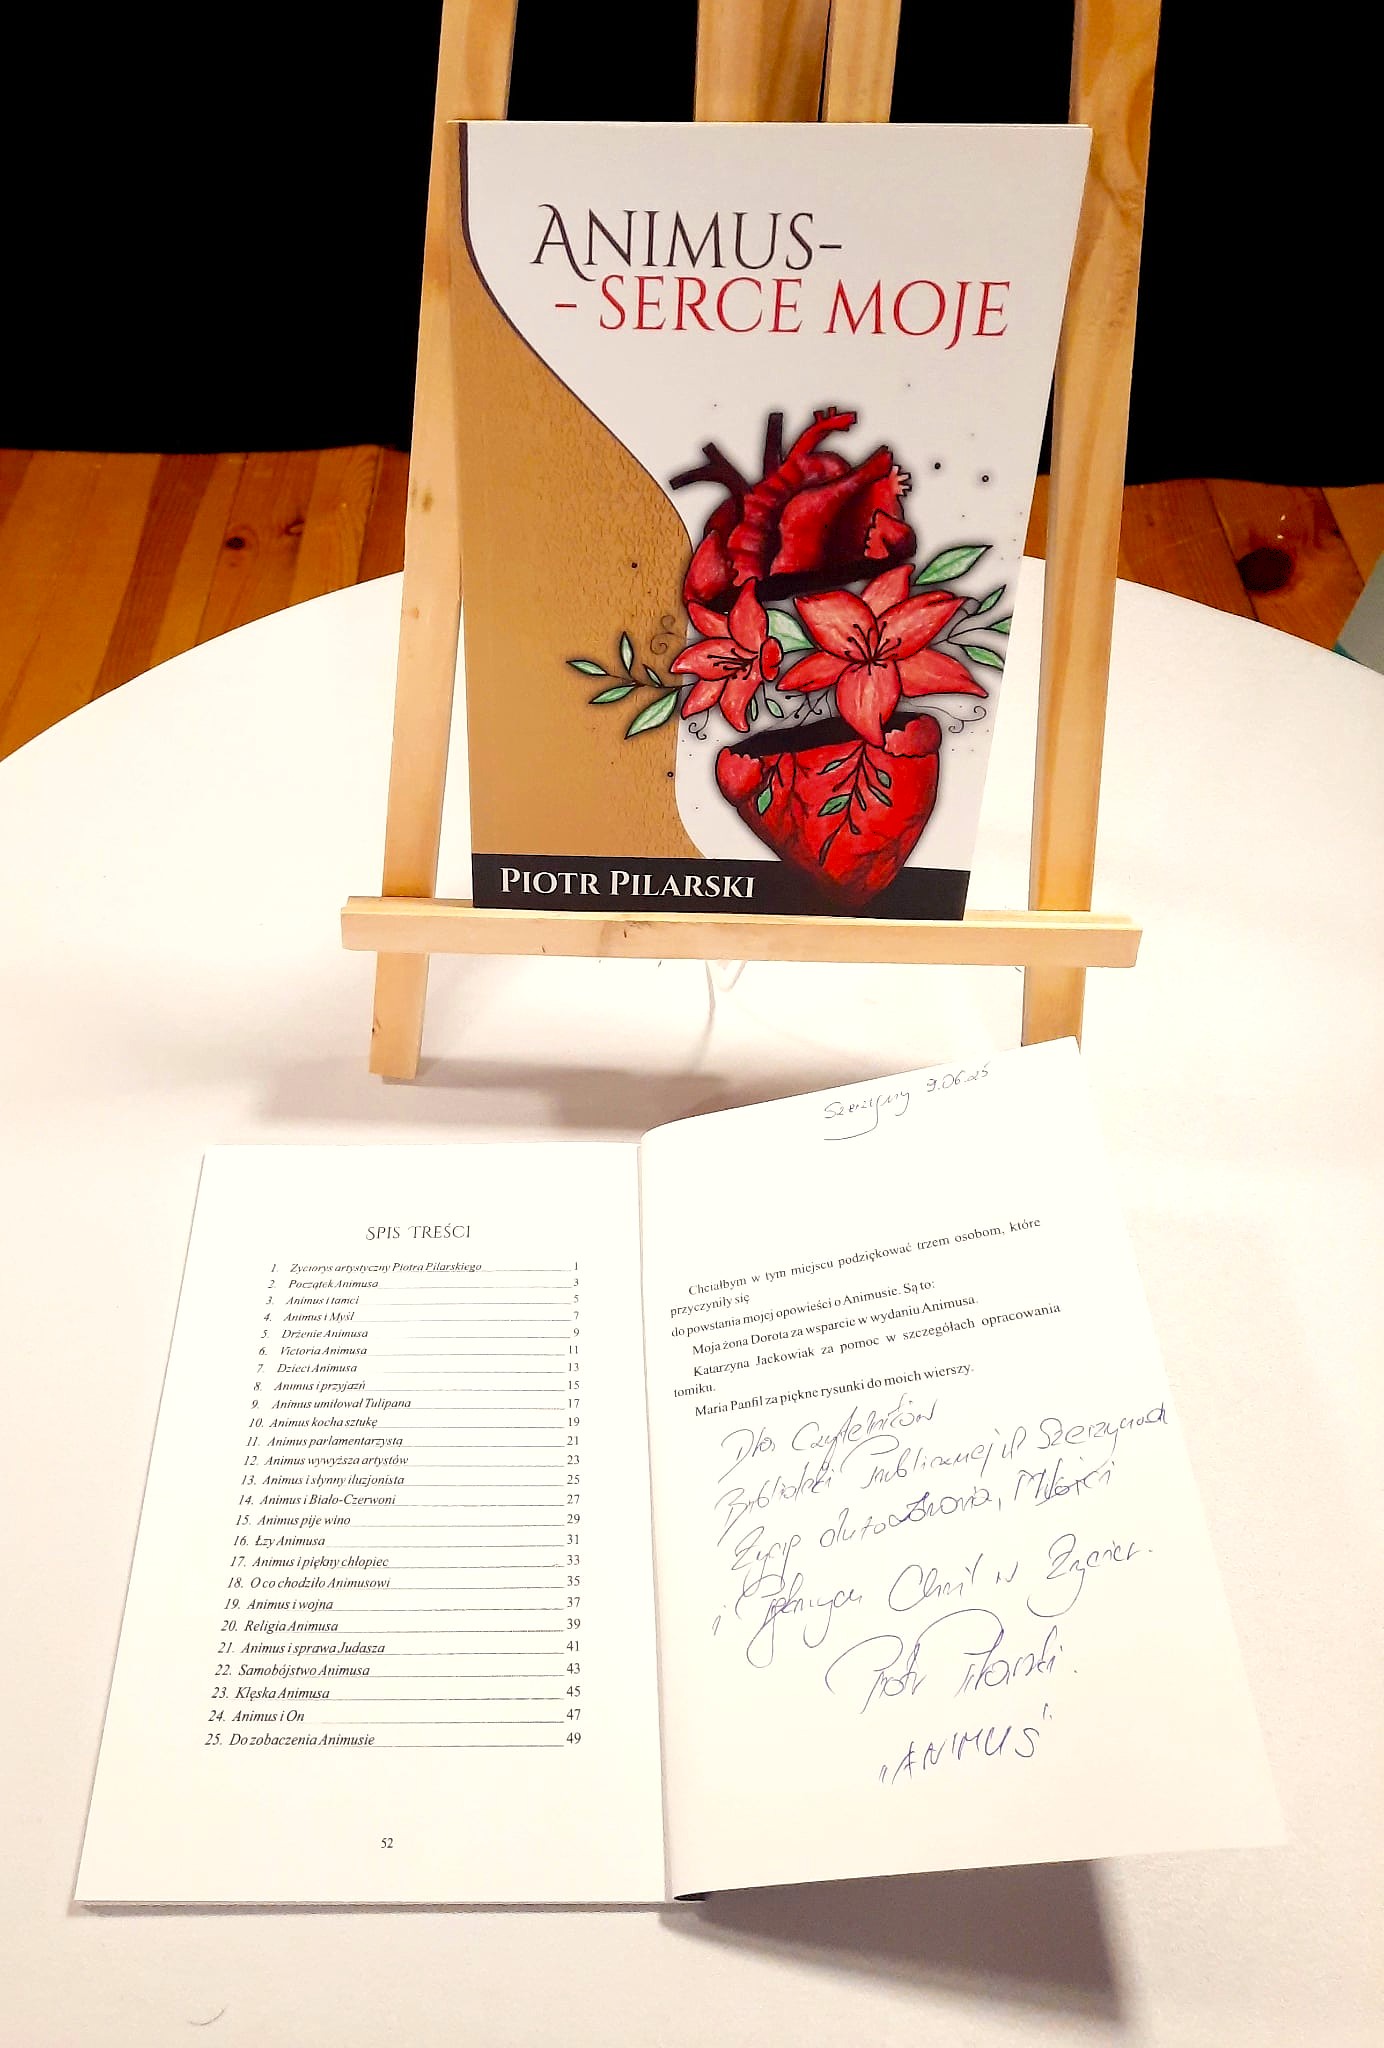 ANIMUS-
- SERCE MOJE
PIOTR PILARSKI
SPIS TREŚCI
1. Życiorys artystyczny Piotra Pilarskiego 1
2. Początek Animusa 3
3. Animus i tamci 5
4. Animus i Myśl 7
5. Drżenie Animusa 9
6. Victoria Animusa 11
7. Dzieci Animusa 13
8. Animus i przyjaźń 15
9. Animus umiłował Tulipana 17
10. Animus kocha sztukę 19
11. Animus parlamentarzystą 21
12. Animus wywyższa artystów 23
13. Animus i słynny iluzjonista 25
14. Animus i Biało-Czerwoni 27
15. Animus pije wino 29
16. Łzy Animusa 31
17. Animus i piękny chłopiec 33
18. O co chodziło Animusowi 35
19. Animus i wojna 37
20. Religia Animusa 39
21. Animus i sprawa Judasza 41
22. Samobójstwo Animusa 43
23. Klęska Animusa 45
24. Animus i On 47
25. Do zobaczenia Animusie 49
52
Szerzyny 9.06.25
Chciałbym w tym miejscu podziękować trzem osobom, które
przyczyniły się
do powstania mojej opowieści o Animusie. Są to:
Moja żona Dorota za wsparcie w wydaniu Animusa.
Katarzyna Jackowiak za pomoc w szczegółach opracowania
tomiku.
Maria Panfil za piękne rysunki do moich wierszy.
Dla Czytelników
Biblioteki Publicznej w Szerzynach
Życzę dużo zdrowia, Miłości
i Pięknych Chwil w Życiu.
Piotr Pilarski.
"ANIMUS"